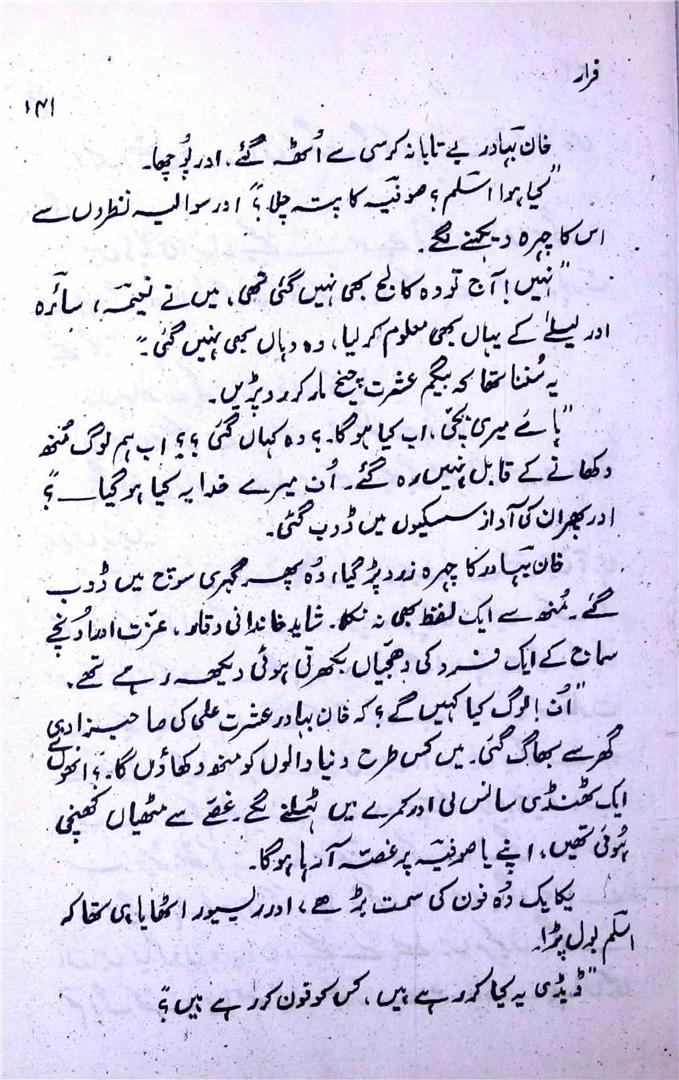 فرار
۱۴۱
خان بہادر بے تابانہ کرسی سے اُٹھ گئے، اور پُوچھا۔
"کیا ہوا اسلم؟ صوفیہ کا پتہ چلا؟" اور سوالیہ نظروں سے
اس کا چہرہ دیکھنے لگے۔
"نہیں! آج تو وہ کالج بھی نہیں گئی تھی، میں نے نعیمہ، سائرہ
اور لیلےٰ کے یہاں بھی معلوم کر لیا، وہ وہاں بھی نہیں گئی۔"
یہ سُننا تھا کہ بیگم عشرت چیخ مار کر رو پڑیں۔
"ہائے میری بچّی، اب کیا ہوگا۔؟ وہ کہاں گئی؟؟ اب ہم لوگ مُنھ
دکھانے کے قابل نہیں رہ گئے۔ اُف میرے خدا یہ کیا ہو گیا——؟"
اور پھر ان کی آواز سسکیوں میں ڈوب گئی۔
خان بہادر کا چہرہ زرد پڑ گیا، وُہ پھر گہری سوچ میں ڈوب
گئے۔ مُنھ سے ایک لفظ بھی نہ نکلا۔ شاید خاندانی وقار، عزّت اور اُونچے
سماج کے ایک فرد کی دھجّیاں بکھرتی ہوئی دیکھ رہے تھے۔
"اُف! لوگ کیا کہیں گے؟ کہ خان بہادر عشرت علی کی صاحبزادی
گھر سے بھاگ گئی۔ میں کس طرح دنیا والوں کو منھ دکھاؤں گا۔؟" انھوں نے
ایک ٹھنڈی سانس لی اور کمرے میں ٹہلنے لگے۔ غصّے سے مٹھیاں کھینچی
ہُوئی تھیں، اپنے یا صوفیہ پر غصّہ آ رہا ہوگا۔
یکایک وُہ فون کی سمت بڑھے، اور ریسیور اٹھایا ہی تھا کہ
اسلم بول پڑا۔
"ڈیڈی یہ کیا کر رہے ہیں، کس کو فون کر رہے ہیں؟"